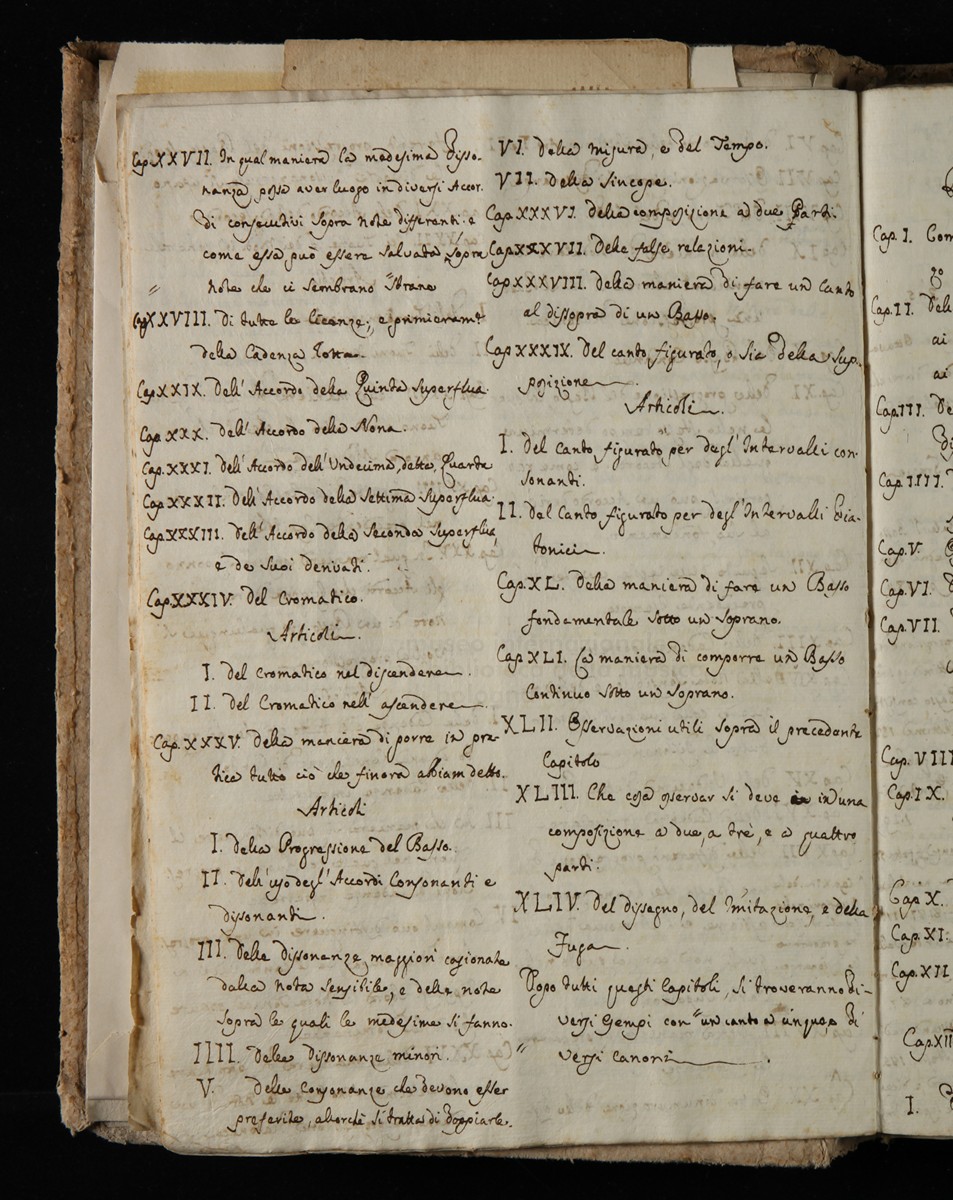 Cap. XXVII. In qual maniera la medesima Disso-
nanza possa aver luogo in diversi Accor.
di consecutivi sopra note differenti. e
come essa può essere salvata sopra
" note che ci sembrano strane
Cap. XXVIII. Di tutte le licenze; e primieramte
della Cadenza Rotta.
Cap. XXIX. Dell' Accordo della Quinta Superflua.
Cap. XXX. Dell' Accordo della Nona.
Cap. XXXI. Dell' Accordo dell' Undecima, detta, Quarta
Cap. XXXII. Dell' Accordo della Settima Superflua.
Cap. XXXIII. Dell' Accordo della Seconda Superflua,
e de suoi derivati.
Cap. XXXIV. Del Cromatico.
Articoli.
I. Del Cromatico nel discendere.
II. Del Cromatico nell' ascendere.
Cap. XXXV. Della maniera di porre in pra-
tica tutto ciò che finora abbiam detto.
Articoli
I. Della Progressione del Basso.
II. Dell' uso degl' Accordi Consonanti e
dissonanti.
III. Delle dissonanze maggiori cagionate
dalla nota sensibile, e delle note
sopra le quali le medesime si fanno.
IIII. Delle Dissonanze minori.
V. Delle Consonanze che devono esser
preferite, allorchè si tratta di doppiarle.
VI. Della misura, e del Tempo.
VII. Della Sincope.
Cap. XXXVI. Della composizione a due Parti.
Cap. XXXVII. Delle false relazioni.
Cap. XXXVIII. Della maniera di fare un Canto
al dissopra di un Basso.
Cap. XXXIX. Del canto figurato, o sia della sup-
posizione.
Articoli.
I. Del Canto figurato per degl' Intervalli con-
sonanti.
II. Del Canto figurato per degl' Intervalli Dia-
tonici.
Cap. XL. Della maniera di fare un Basso
fondamentale sotto un soprano.
Cap. XLI. La maniera di comporre un Basso
Continuo sotto un soprano.
XLII. Osservazioni utili sopra il precedente
Capitolo
XLIII. Che cosa osservar si deve in una
composizione a due, a trè, e a quattro
parti.
XLIV. Del dissegno, del Imitazione, e della
Fuga.
Dopo tutti questi Capitoli, si troveranno di-
versi Esempi con un canto a cinque, di
" versi Canoni.
Cap. I. Com
Cap. II. Dell
ai
ai
Cap. III. De
Di
Cap. IIII.
Cap. V.
Cap. VI. D
Cap. VII.
Cap. VIII
Cap. IX.
Cap. X.
Cap. XI.
Cap. XII
Cap. XII
I.